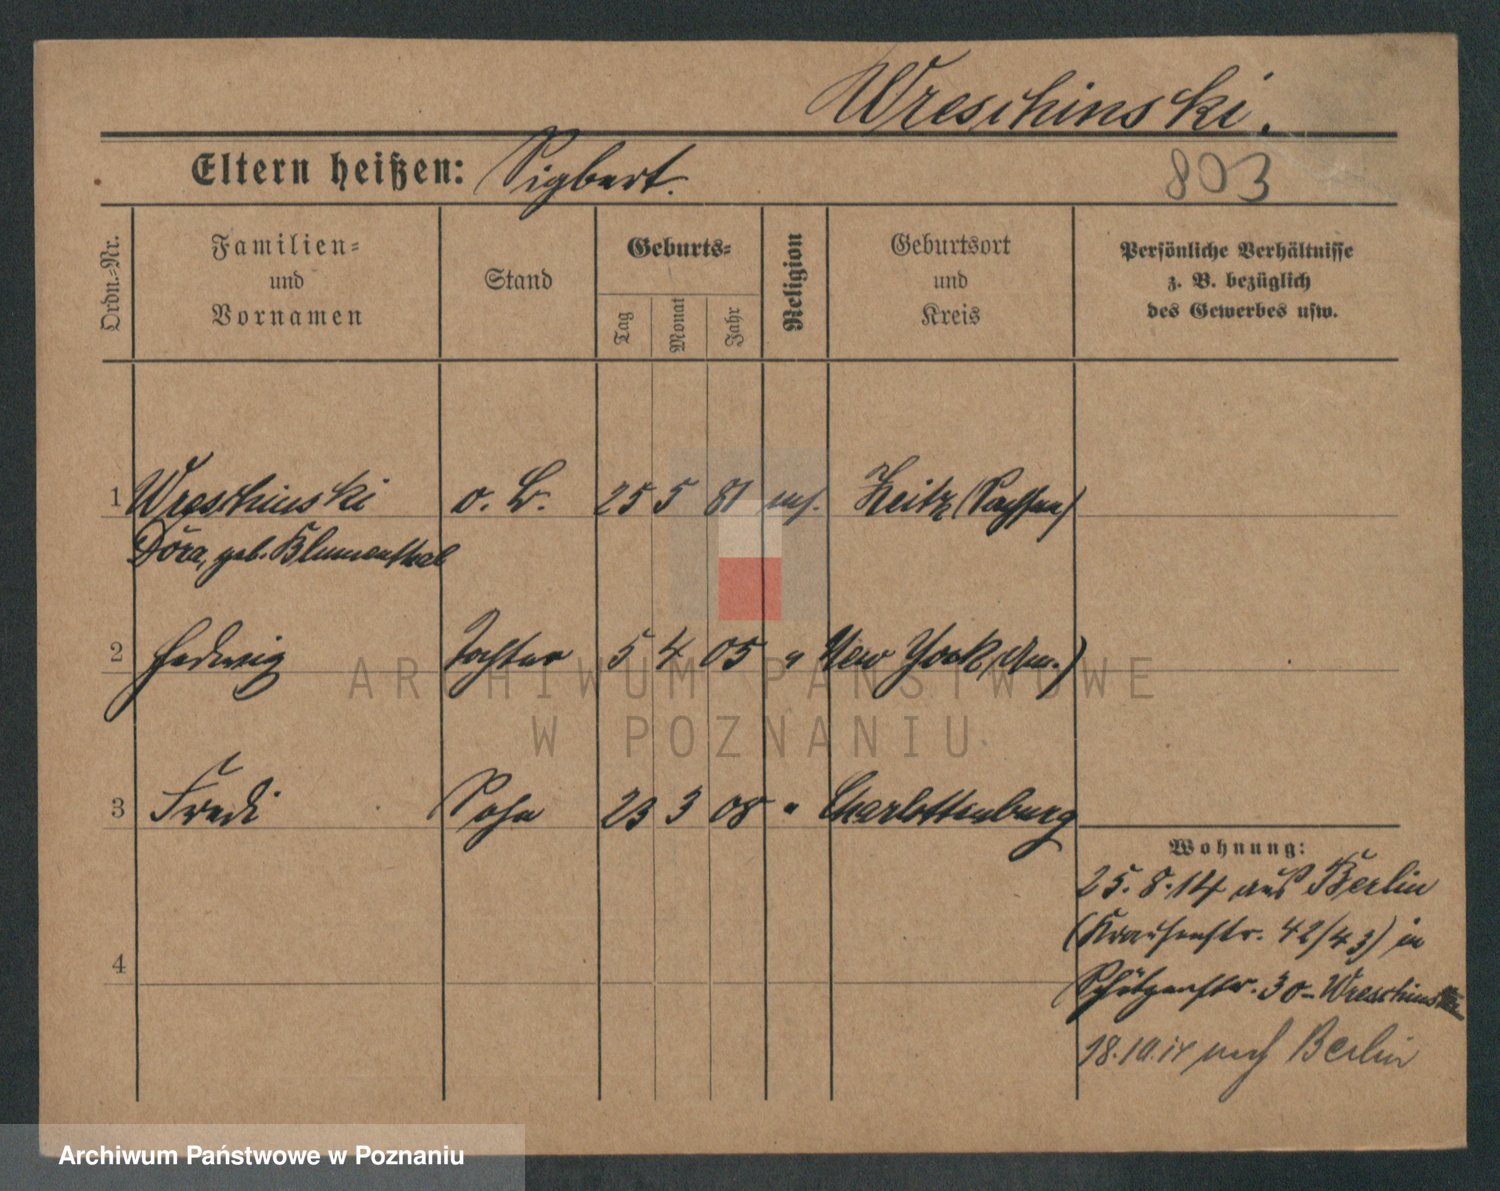 Wreschinski.
Eltern heißen: Sigbert.
803
Ordn.-Nr.
Familien-
und
Vornamen
Stand
Geburts-
Tag
Monat
Jahr
Religion
Geburtsort
und
Kreis
Persönliche Verhältnisse
z. B. bezüglich
des Gewerbes usw.
1 Wreschinski o. B. 25 5 81 mos. Zeitz (Sachsen)
Dora, geb. Blumenthal
2 Hedwig Tochter 5 4 05 " New York (Am.)
ARCHIWUM PAŃSTWOWE
W POZNANIU
3 Fredi Sohn 23 3 08 " Charlottenburg
Wohnung:
25.8.14 aus Berlin
(Krausenstr. 42/43) in
4
Schützenstr. 30 - Wreschinski
18.10.14 nach Berlin
Archiwum Państwowe w Poznaniu